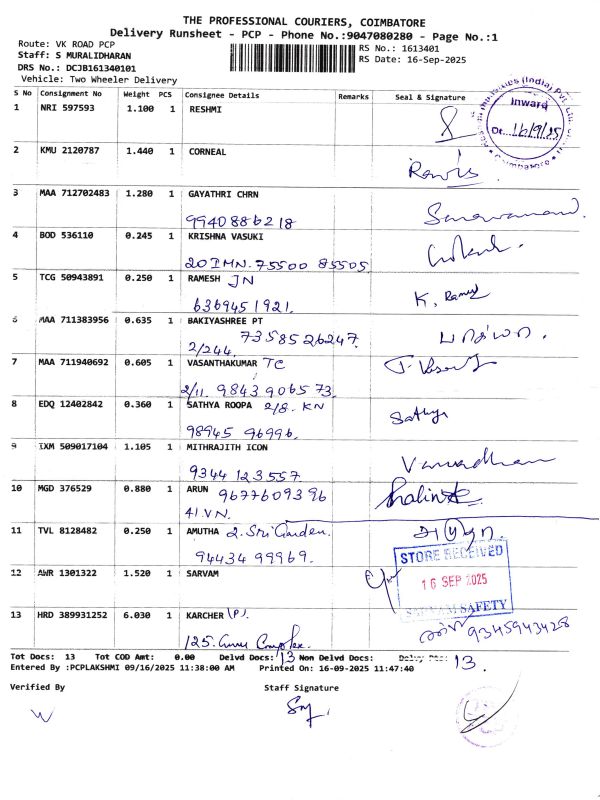 THE PROFESSIONAL COURIERS, COIMBATORE
Delivery Runsheet - PCP - Phone No.:9047080280 - Page No.:1
Route: VK ROAD PCP
RS No.: 1613401
Staff: S MURALIDHARAN
RS Date: 16-Sep-2025
DRS No.: DCJB161340101
Vehicle: Two Wheeler Delivery
S No Consignment No Weight PCS Consignee Details Remarks Seal & Signature
Inward
Dt. 16/9/25
Coimbatore
1 NRI 597593 1.100 1 RESHMI
2 KMU 2120787 1.440 1 CORNEAL
3 MAA 712702483 1.280 1 GAYATHRI CHRN
9940886218
4 BOD 536110 0.245 1 KRISHNA VASUKI
20 IMN. 75500 85505
5 TCG 50943891 0.250 1 RAMESH JN
K. Ramesh
6369451921.
6 MAA 711383956 0.635 1 BAKIYASHREE PT
7358526247.
2/244.
7 MAA 711940692 0.605 1 VASANTHAKUMAR TC
2/11. 9843906573.
8 EDQ 12402842 0.360 1 SATHYA ROOPA 2/8. KN
Sathya
98945 96996.
9 IXM 509017104 1.105 1 MITHRAJITH ICON
9344 123557.
10 MGD 376529 0.880 1 ARUN 9677609396
41.VN.
11 TVL 8128482 0.250 1 AMUTHA 2. Sri Garden.
94434 99969.
STORE RECEIVED
12 AWR 1301322 1.520 1 SARVAM
16 SEP 2025
SARVAM SAFETY
13 HRD 389931252 6.030 1 KARCHER (P).
9345943428
125.
Tot Docs: 13 Tot COD Amt: 0.00 Delvd Docs: 13 Non Delvd Docs: 13.
Entered By :PCPLAKSHMI 09/16/2025 11:38:00 AM Printed On: 16-09-2025 11:47:40
Verified By Staff Signature